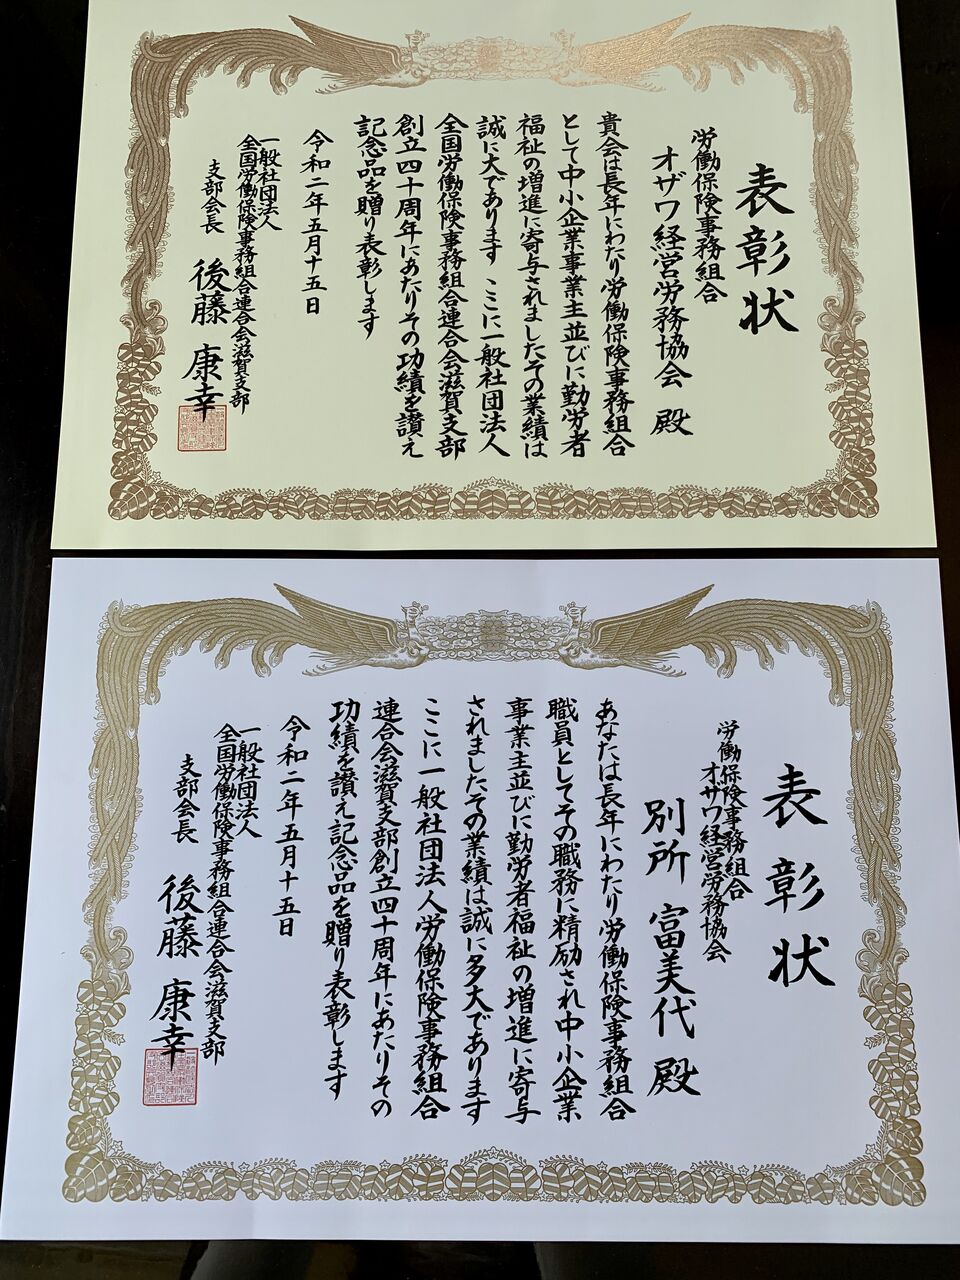 表彰状
労働保険事務組合
オザワ経営労務協会 殿
貴会は長年にわたり労働保険事務組合
として中小企業事業主並びに勤労者
福祉の増進に寄与されましたその業績は
誠に大であります ここに一般社団法人
全国労働保険事務組合連合会滋賀支部
創立四十周年にあたりその功績を讃え
記念品を贈り表彰します
令和二年五月十五日
一般社団法人
全国労働保険事務組合連合会滋賀支部
支部会長 後藤 康幸
表彰状
労働保険事務組合
オザワ経営労務協会
別所 富美代 殿
あなたは長年にわたり労働保険事務組合
職員としてその職務に精励され中小企業
事業主並びに勤労者福祉の増進に寄与
されましたその業績は誠に多大であります
ここに一般社団法人労働保険事務組合
連合会滋賀支部創立四十周年にあたりその
功績を讃え記念品を贈り表彰します
令和二年五月十五日
一般社団法人
全国労働保険事務組合連合会滋賀支部
支部会長 後藤 康幸